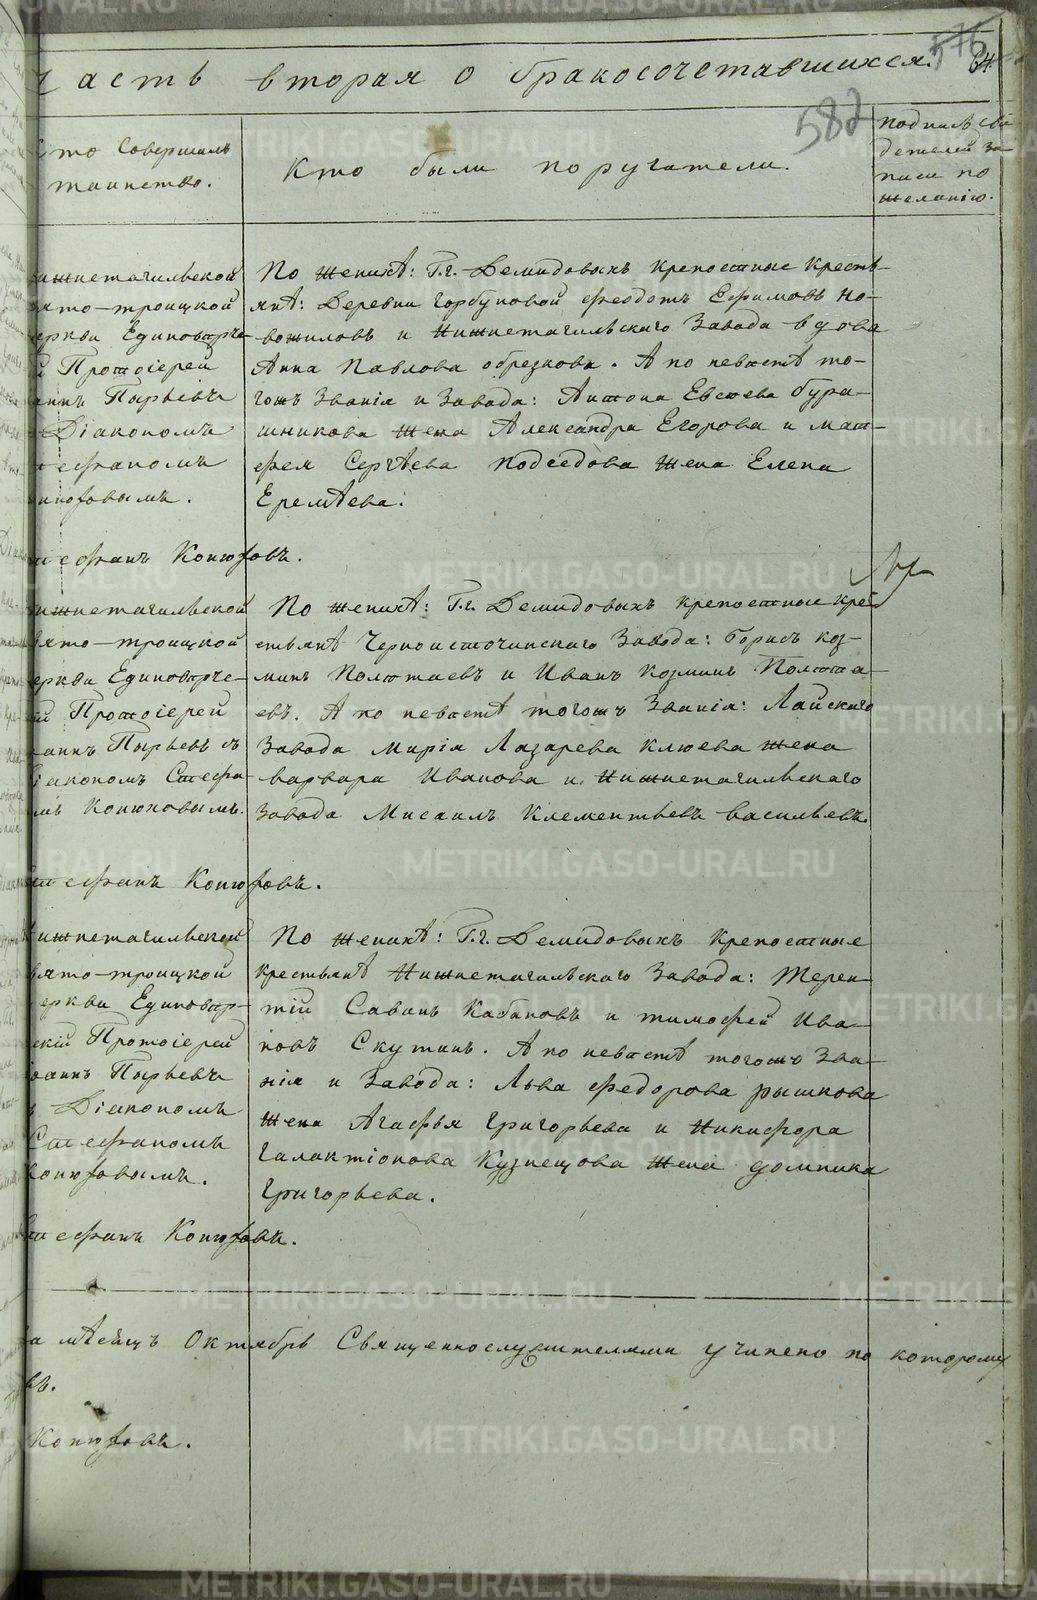 часть вторая о бракосочетавшихся.
582
Кто совершилъ
таинство.
Кто были поручатели.
подпись сви-
детелей за-
писи по
желанію.
Нижнетагильской
Свято-троицкой
церкви Единоверче-
й Протоіерей
Іоаннъ Пырьевъ
Діакономъ
Стефаномъ
Конюховымъ.
По женихѣ: Г.г. Демидовыхъ крепостные кресть-
янѣ: Деревни горбуновой Феодотъ Ефимовъ но-
вожиловъ и Нижнетагильскаго Завода вдова
Анна Павлова обрезкова. А по невестѣ то-
гожъ Званія и Завода: Антона Евсеева бура-
шникова жена Александра Егорова и мат-
фея Сергѣева подседова жена Елена
Еремѣева.
Стефанъ Конюховъ.
Нижнетагильской
Свято-троицкой
церкви Единоверче-
й Протоіерей
Іоаннъ Пырьевъ съ
Діакономъ Стефа-
номъ Конюховымъ.
По женихѣ: Г.г. Демидовыхъ крепостные кре-
стьянѣ Черноисточинскаго Завода: Борисъ коз-
минъ Полетаевъ и Иванъ Козминъ Полета-
евъ. А по невестѣ тогожъ Званія: Лайскаго
Завода Мирія Лазарева клюева жена
варвара Иванова и Нижнетагильскаго
Завода Мисаилъ Клементьевъ васильевъ.
Стефанъ Конюховъ.
Нижнетагильской
Свято-троицкой
церкви Единовер-
ческій Протоіерей
Іоаннъ Пырьевъ
съ Діакономъ
Стефаномъ
Конюховымъ.
По женихѣ: Г.г. Демидовыхъ крепостные
крестьянѣ Нижнетагильскаго Завода: Терен-
тій Савинъ Кабановъ и тимофей Ива-
новъ Скутинъ. А по невестѣ тогожъ Зва-
нія и Завода: Льва Федорова рышкова
жена Агафья Григорьева и Никифора
Галактіонова Кузнецова жена домника
Григорьева.
Стефанъ Конюховъ.
за мѣсяцъ Октябрь Священнослужителями учинено по которому
въ.
Конюховъ.
METRIKI.GASO-URAL.RU